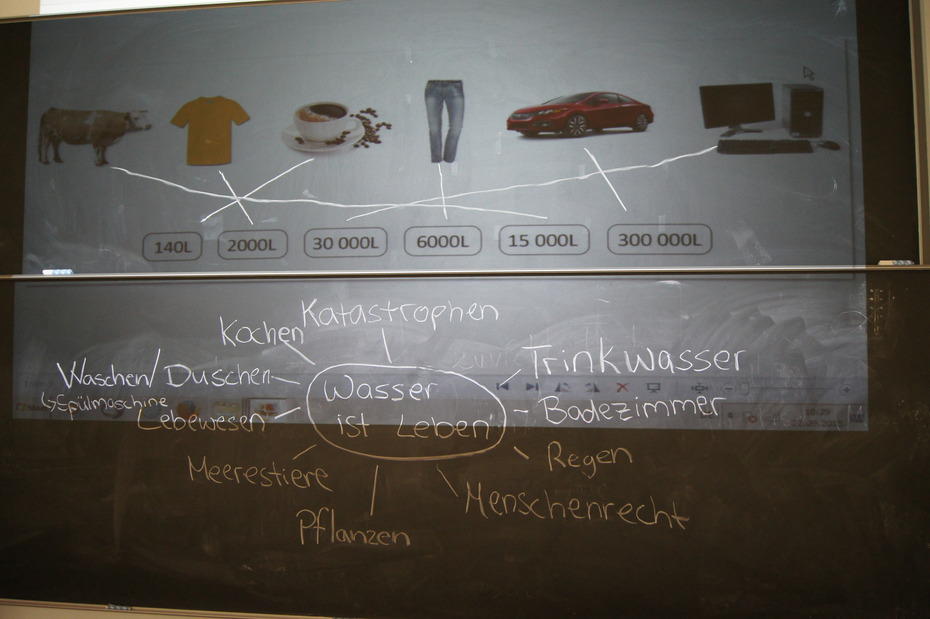 140L
2000L
30 000L
6000L
15 000L
300 000L
Katastrophen
Kochen
Trinkwasser
Waschen/Duschen
Wasser
ist Leben
Spülmaschine
Badezimmer
Lebewesen
Meerestiere
Regen
Menschenrecht
Pflanzen